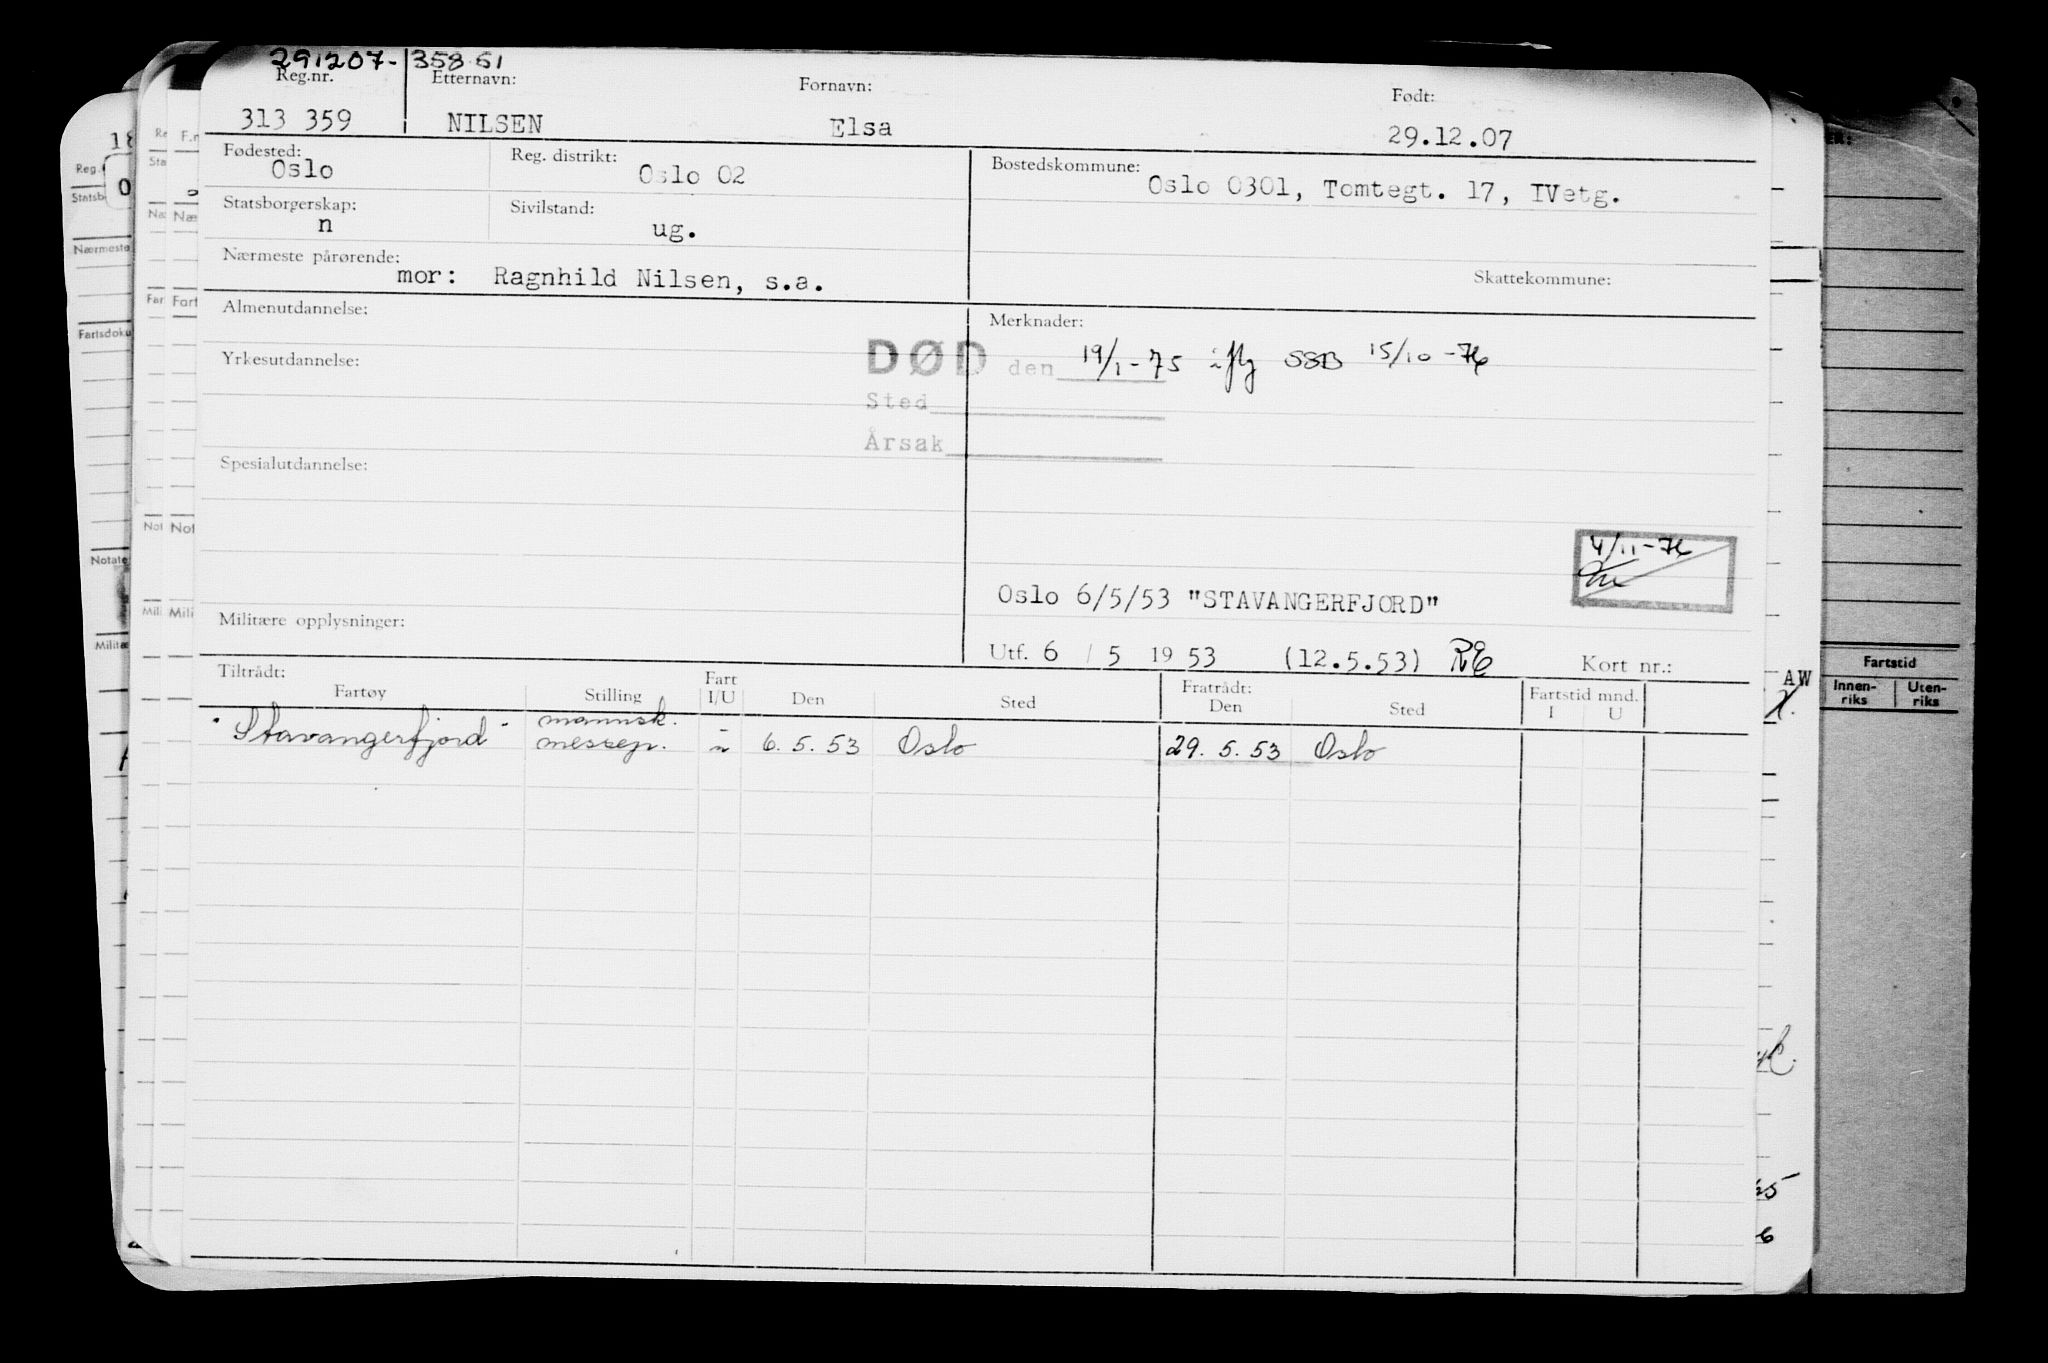 291207-35861
Reg.nr. Etternavn: Fornavn: Født:
313 359 NILSEN Elsa 29.12.07
Fødested: Oslo Reg. distrikt: Oslo 02 Bostedskommune: Oslo 0301, Tomtegt. 17, IVetg.
Statsborgerskap: n Sivilstand: ug.
Nærmeste pårørende: mor: Ragnhild Nilsen, s.a. Skattekommune:
Almenutdannelse: Merknader:
Yrkesutdannelse: DØD den 19/1-75 iflg SSB 15/10-76
Sted
Årsak
Spesialutdannelse:
4/11-76
Oslo 6/5/53 "STAVANGERFJORD"
Militære opplysninger: Utf. 6 / 5 19 53 (12.5.53) RE Kort nr.:
Tiltrådt: Fart Fratrådt: Fartstid mnd.
Fartøy Stilling I/U Den Sted Den Sted I U
"Stavangerfjord" mannsk. messep. u 6.5.53 Oslo 29.5.53 Oslo
Reg.
Statsb
Nærmeste
Fartsdoku
Notate
Militæ
Re
Sta
Næ
Far
Not
Mili
F.n
Næ
Fart
Not
Mili
AW
Fartstid
Innen-riks Uten-riks
65
6